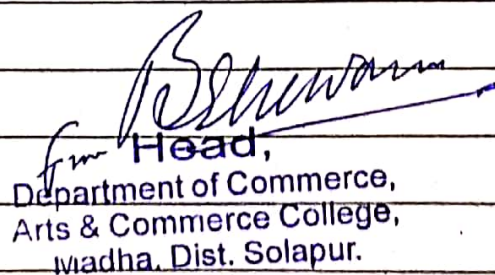 Head,
Department of Commerce,
Arts & Commerce College,
Madha. Dist. Solapur.